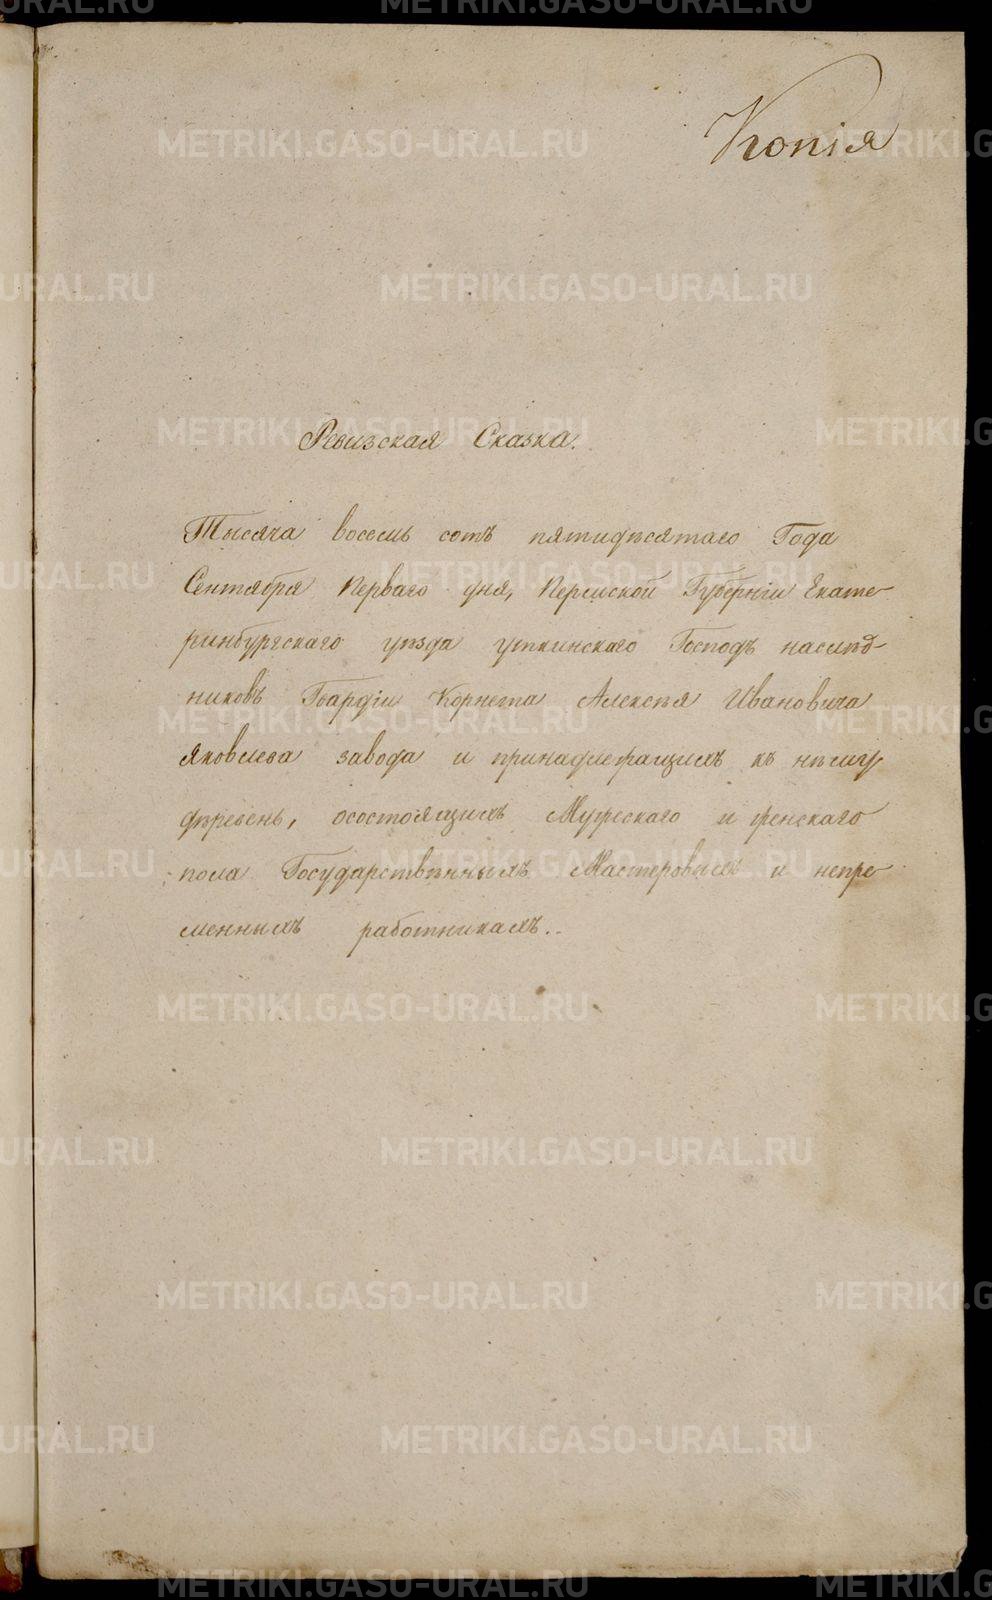 Копія
Ревизская Сказка.
Тысяча восемь сотъ пятидѣсятаго Года
Сентября Перваго дня, Пермской Губерніи Екате
ринбургскаго уѣзда уткинскаго Господъ наслѣд
никовъ Гвардіи Корнета Алексѣя Ивановича
Яковлева завода и принадлежащихъ къ нѣму
дѣревень, осостоящихъ Мужескаго и женскаго
пола Государствѣнныхъ Мастеровыхъ и непре
менныхъ работникахъ..
METRIKI.GASO-URAL.RU